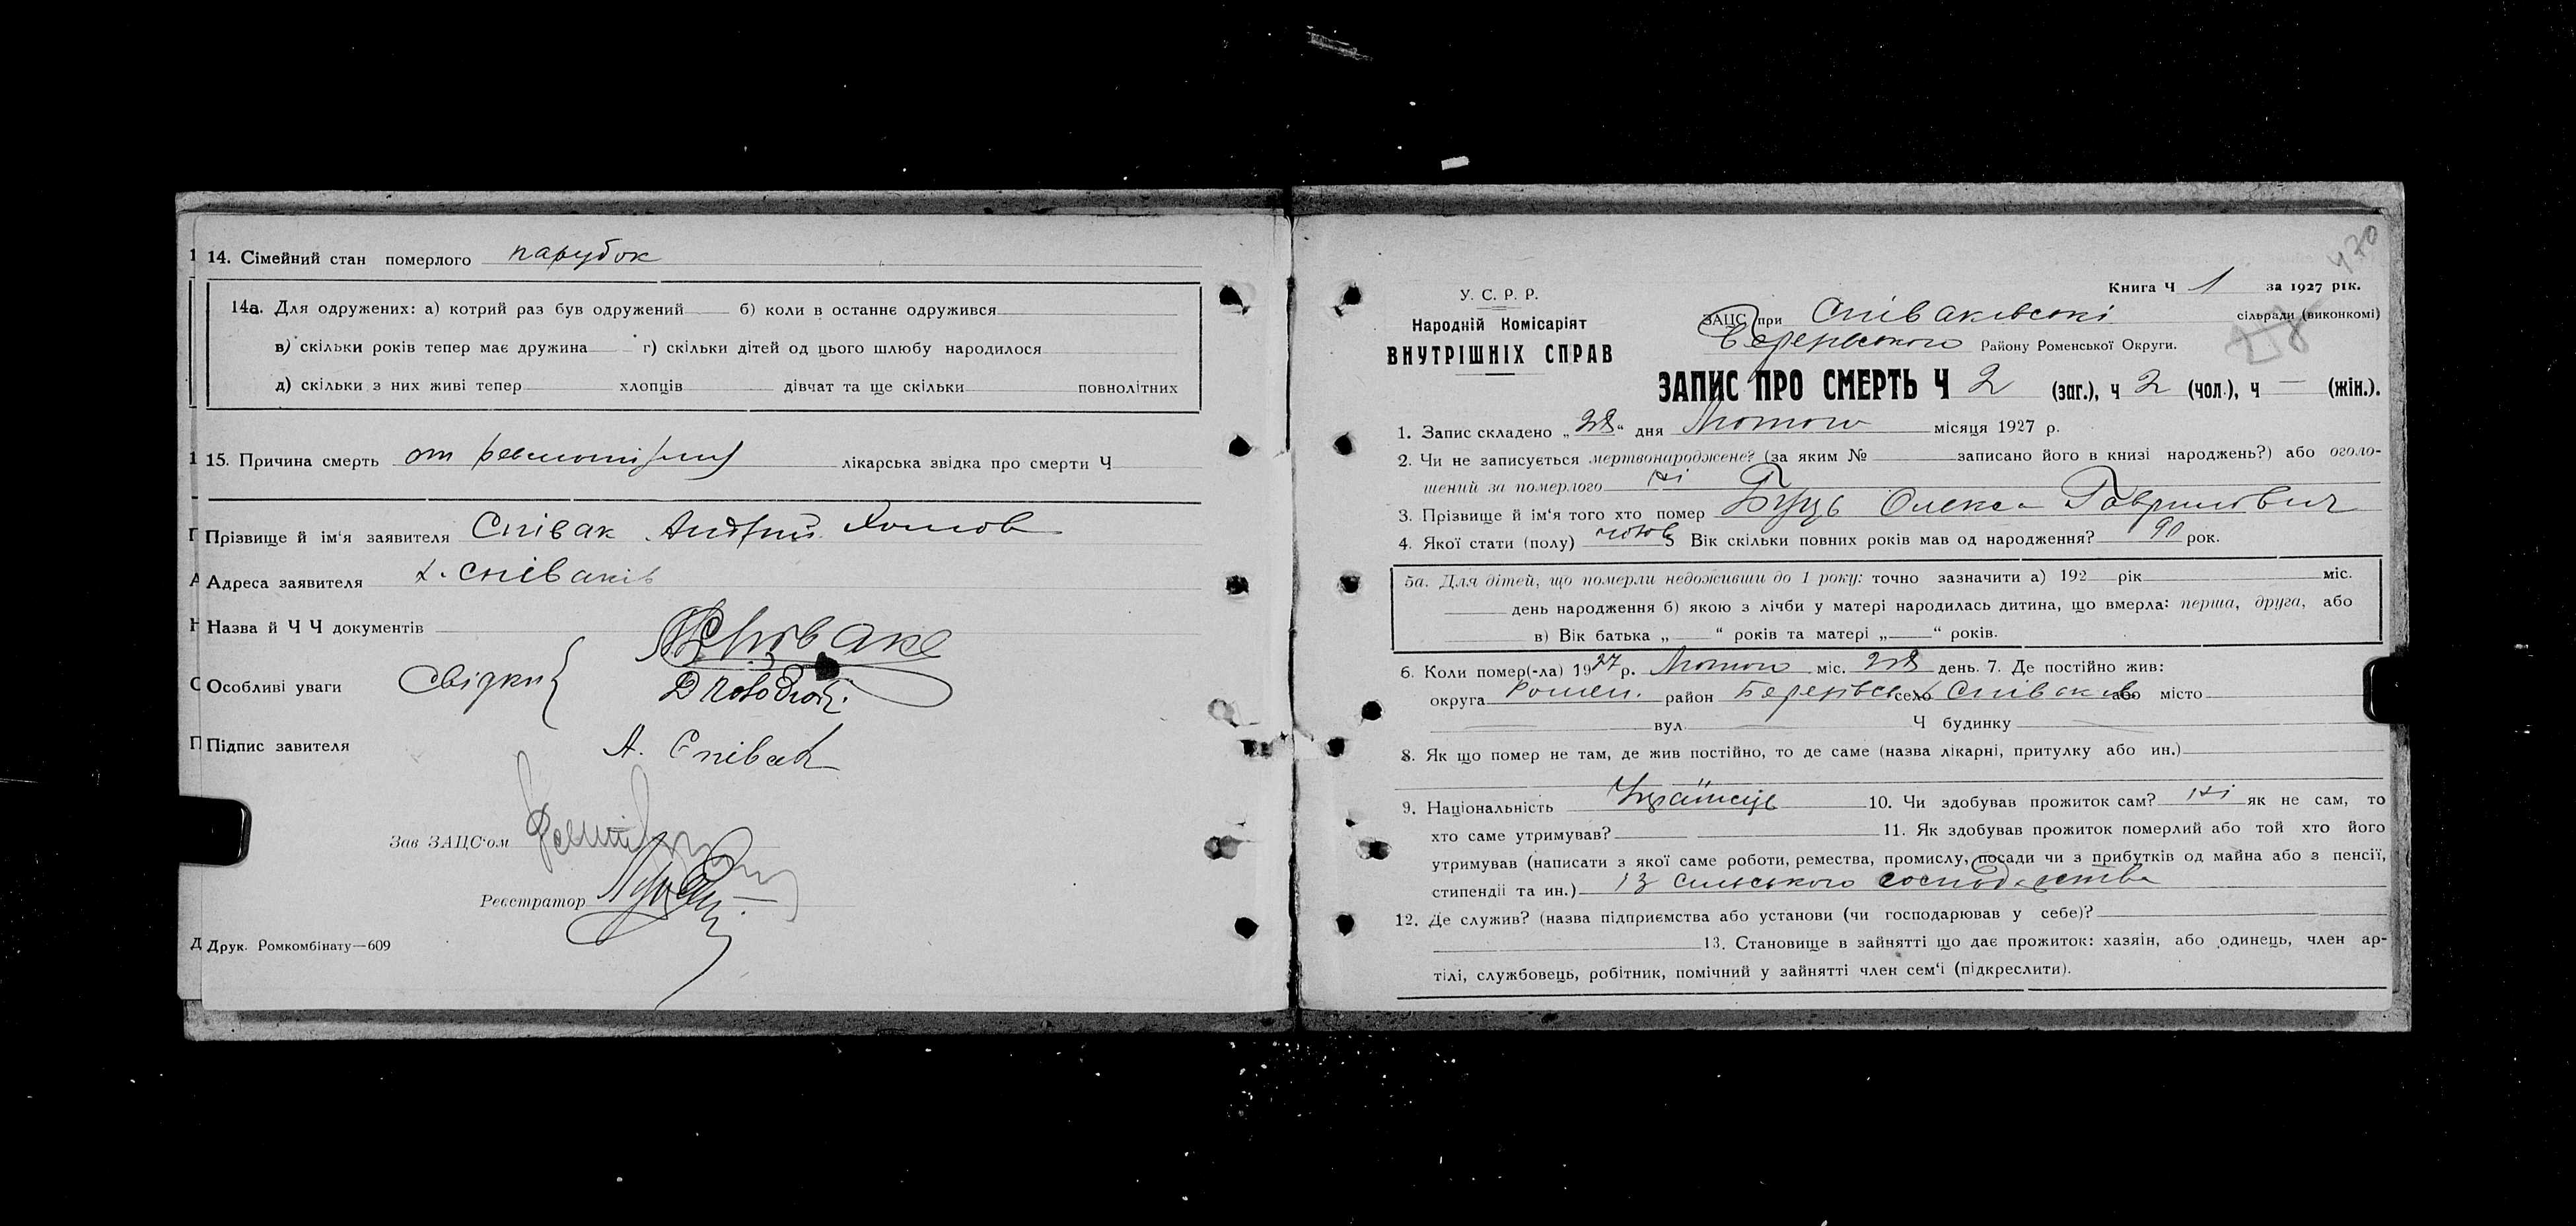 14. Сімейний стан померлого парубок
14а. Для одружених: а) котрий раз був одружений б) коли в останнє одружився
в) скільки років тепер має дружина г) скільки дітей од цього шлюбу народилося
д) скільки з них живі тепер хлопців дівчат та ще скільки повнолітних
15. Причина смерть от лікарська звідка про смерти Ч
Прізвище й ім'я заявителя Співак Андрій Хомов
Адреса заявителя х. Співаків
Назва й Ч Ч документів
Особливі уваги свідки
Підпис завителя А. Співак
Зав ЗАЦС'ом
Реєстратор
Друк. Ромкомбінату—609
470
Книга Ч 1 за 1927 рік.
У. С. Р. Р.
Народній Комісаріят
ВНУТРІШНІХ СПРАВ
ЗАЦС при Співаківські сільради (виконкомі)
Району Роменської Округи.
28
ЗАПИС ПРО СМЕРТЬ Ч 2 (заг.), ч 2 (чол.), ч — (жін.).
1. Запис складено „28“ дня Лютого місяця 1927 р.
2. Чи не записується мертвонароджене? (за яким № записано його в книзі народжень?) або оголо-
шений за померлого ні
3. Прізвище й ім'я того хто помер Буць Олекса Гаврилович
4. Якої стати (полу) чолов 5 Вік скільки повних років мав од народження? 90 рок.
5а. Для дітей, що померли недоживши до 1 року: точно зазначити а) 192 рік міс.
день народження б) якою з лічби у матері народилась дитина, що вмерла: перша, друга, або
в) Вік батька „ “ років та матері „ “ років.
6. Коли помер(-ла) 1927 р. Лютого міс. 28 день. 7. Де постійно жив:
округа Ромен. район село Співаків або місто
вул. Ч будинку
8. Як що помер не там, де жив постійно, то де саме (назва лікарні, притулку або ин.)
9. Національність Українець 10. Чи здобував прожиток сам? ні як не сам, то
хто саме утримував? 11. Як здобував прожиток померлий або той хто його
утримував (написати з якої саме роботи, ремества, промислу, посади чи з прибутків од майна або з пенсії,
стипендії та ин.) із сільського господарства
12. Де служив? (назва підприємства або установи (чи господарював у себе)?
13. Становище в зайнятті що дає прожиток: хазяін, або одинець, член ар-
тілі, службовець, робітник, помічний у зайнятті член сем'і (підкреслити).